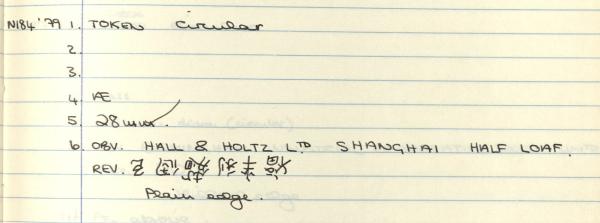 N184 '79 1. TOKEN circular
2.
3.
4. Æ
5. 28mm.
6. OBV. HALL & HOLTZ LTD SHANGHAI HALF LOAF.
REV.
Plain edge.